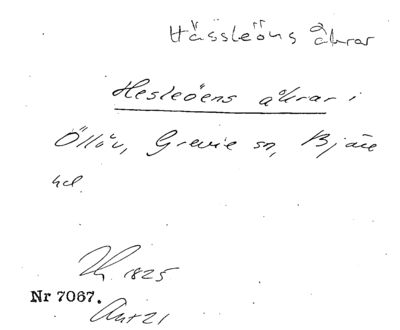 Hässleöns åkrar
Hesleöens åkrar i
Öllöv, Grevie sn, Bjäre
hd.
1825
Nr 7067.
Akt 21